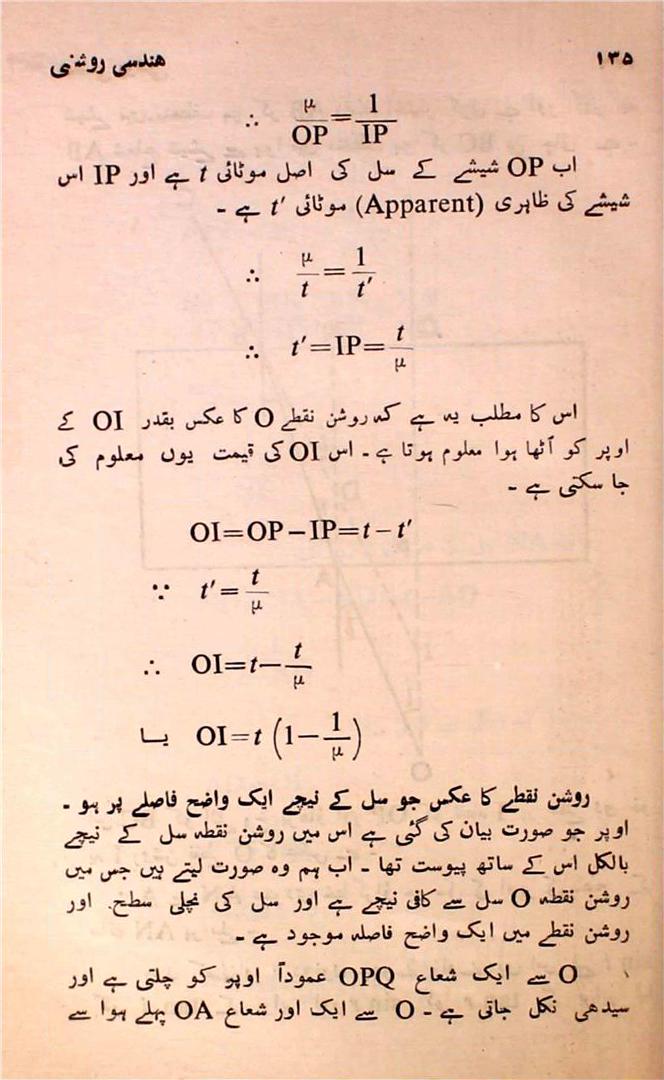 ہندسی روشنی ۱۳۵
∴ μ/OP = 1/IP
اب OP شیشے کے سل کی اصل موٹائی t ہے اور IP اس
شیشے کی ظاہری (Apparent) موٹائی t′ ہے ۔
∴ μ/t = 1/t′
∴ t′=IP= t/μ
اس کا مطلب یہ ہے کہ روشن نقطے O کا عکس بقدر OI کے
اوپر کو اُٹھا ہوا معلوم ہوتا ہے ۔ اس OI کی قیمت یوں معلوم کی
جا سکتی ہے ۔
OI=OP−IP=t−t′
∵ t′= t/μ
∴ OI=t− t/μ
یا OI=t (1− 1/μ)
روشن نقطے کا عکس جو سل کے نیچے ایک واضح فاصلے پر ہو ۔
اوپر جو صورت بیان کی گئی ہے اس میں روشن نقطہ سل کے نیچے
بالکل اس کے ساتھ پیوست تھا ۔ اب ہم وہ صورت لیتے ہیں جس میں
روشن نقطہ O سل سے کافی نیچے ہے اور سل کی نچلی سطح اور
روشن نقطے میں ایک واضح فاصلہ موجود ہے ۔
O سے ایک شعاع OPQ عموداً اوپو کو چلتی ہے اور
سیدھی نکل جاتی ہے ۔ O سے ایک اور شعاع OA پہلے ہوا سے